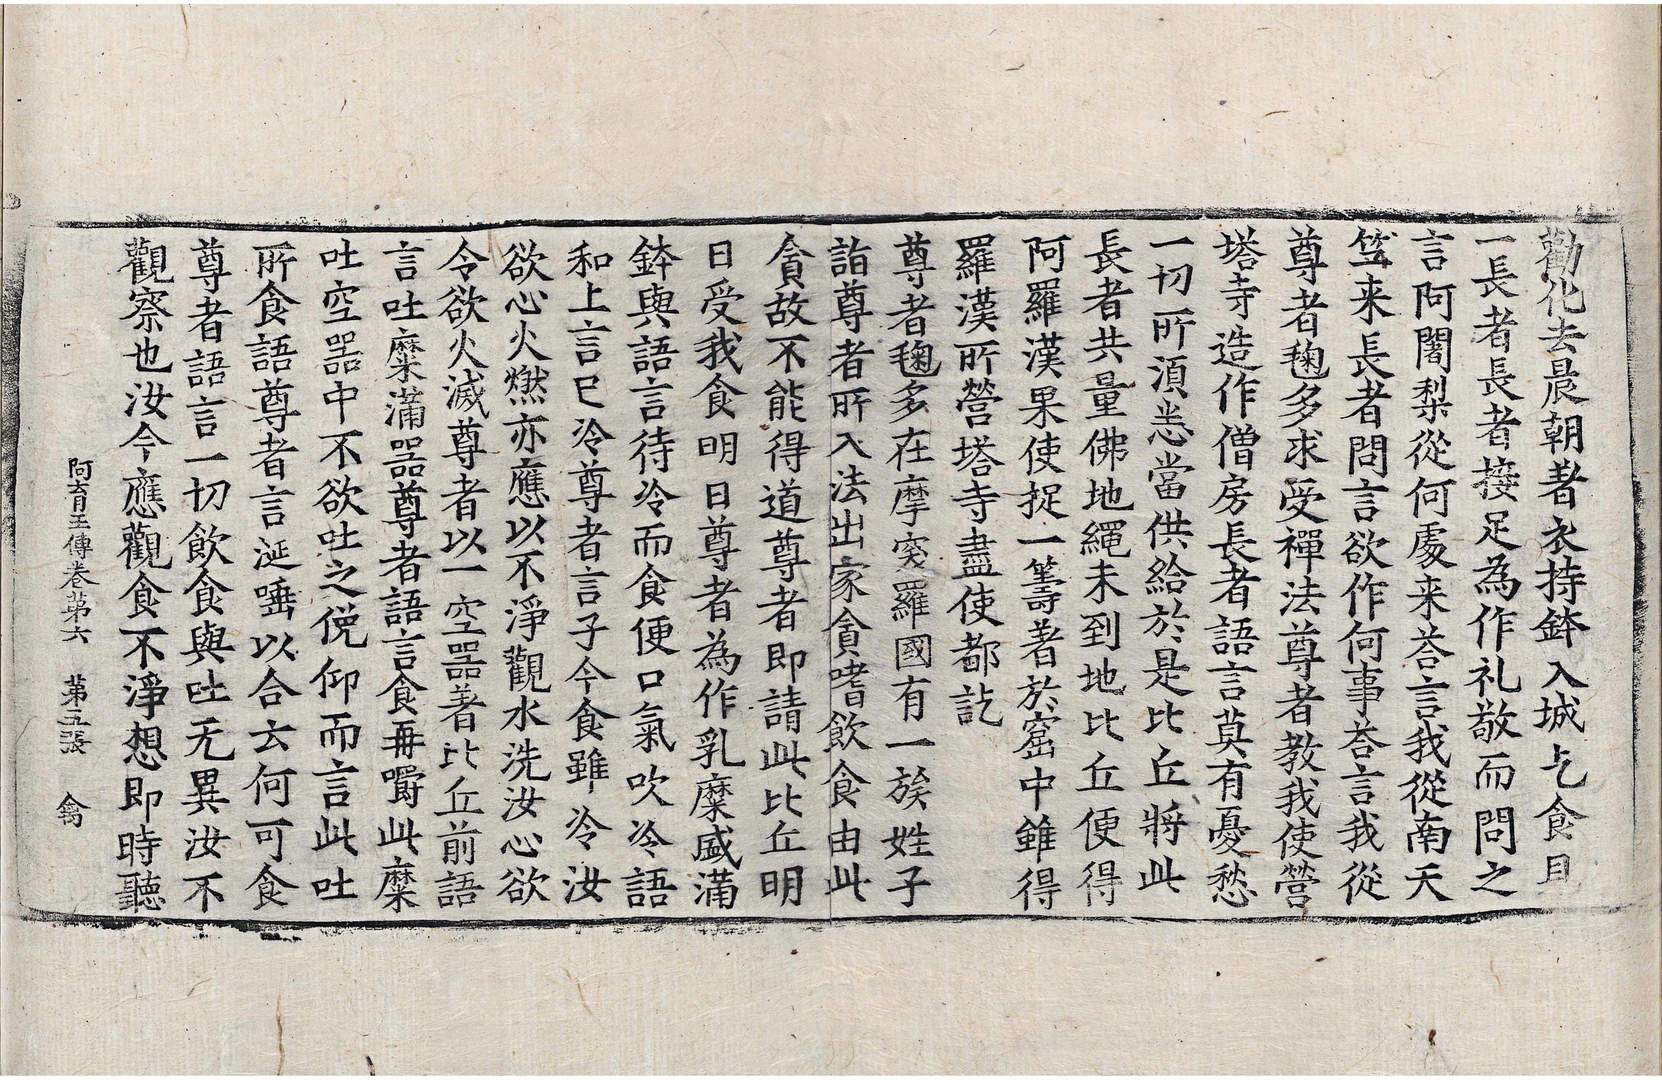 勸化去晨朝著衣持鉢入城乞食見
一長者長者接足為作礼敬而問之
言阿闍梨從何處来荅言我從南天
笁来長者問言欲作何事荅言我從
尊者毱多求受禪法尊者教我使營
塔寺造作僧房長者語言莫有憂愁
一切所湏悉當供給於是比丘將此
長者共量佛地繩未到地比丘便得
阿羅漢果使捉一籌著於窟中雖得
羅漢所營塔寺盡使都訖
尊者毱多在摩突羅國有一族姓子
詣尊者所入法出家貪嗜飲食由此
貪故不能得道尊者即請此比丘明
日受我食明日尊者為作乳糜盛滿
鉢與語言待冷而食便口氣吹冷語
和上言已冷尊者言子今食雖冷汝
欲心火燃亦應以不淨觀水洗汝心欲
令欲火滅尊者以一空器著比丘前語
言吐糜滿器尊者語言食再嚼此糜
吐空器中不欲吐之俛仰而言此吐
所食語尊者言涎唾以合云何可食
尊者語言一切飲食與吐无異汝不
觀察也汝今應觀食不淨想即時聽
阿育王傳卷第六 第五張 禽